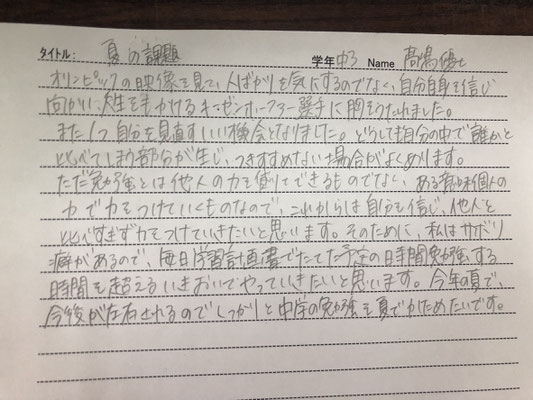 タイトル: 夏の課題 学年 中3 Name 高嶋優士
オリンピックの映像を見て、人ばかりを気にするのでなく、自分自身を信じ
向かい、人生をかけるキーゼンホーファー選手に胸をうたれました。
また1つ自分を見直すいい機会となりました。どうしても自分の中で誰かと
比べてしまう部分が生じ、つきすすめない場合がよくあります。
ただ勉強とは他人の力を借りてできるものでなく、ある意味個人の
力で力をつけていくものなので、これからは自分を信じ、他人と
比べすぎず力をつけていきたいと思います。そのために、私はサボり
癖があるので、毎日学習計画書でたてた予定の時間勉強する
時間を超えるいきおいでやっていきたいと思います。今年の夏で、
今後が左右されるのでしっかりと中学の勉強を夏でかためたいです。